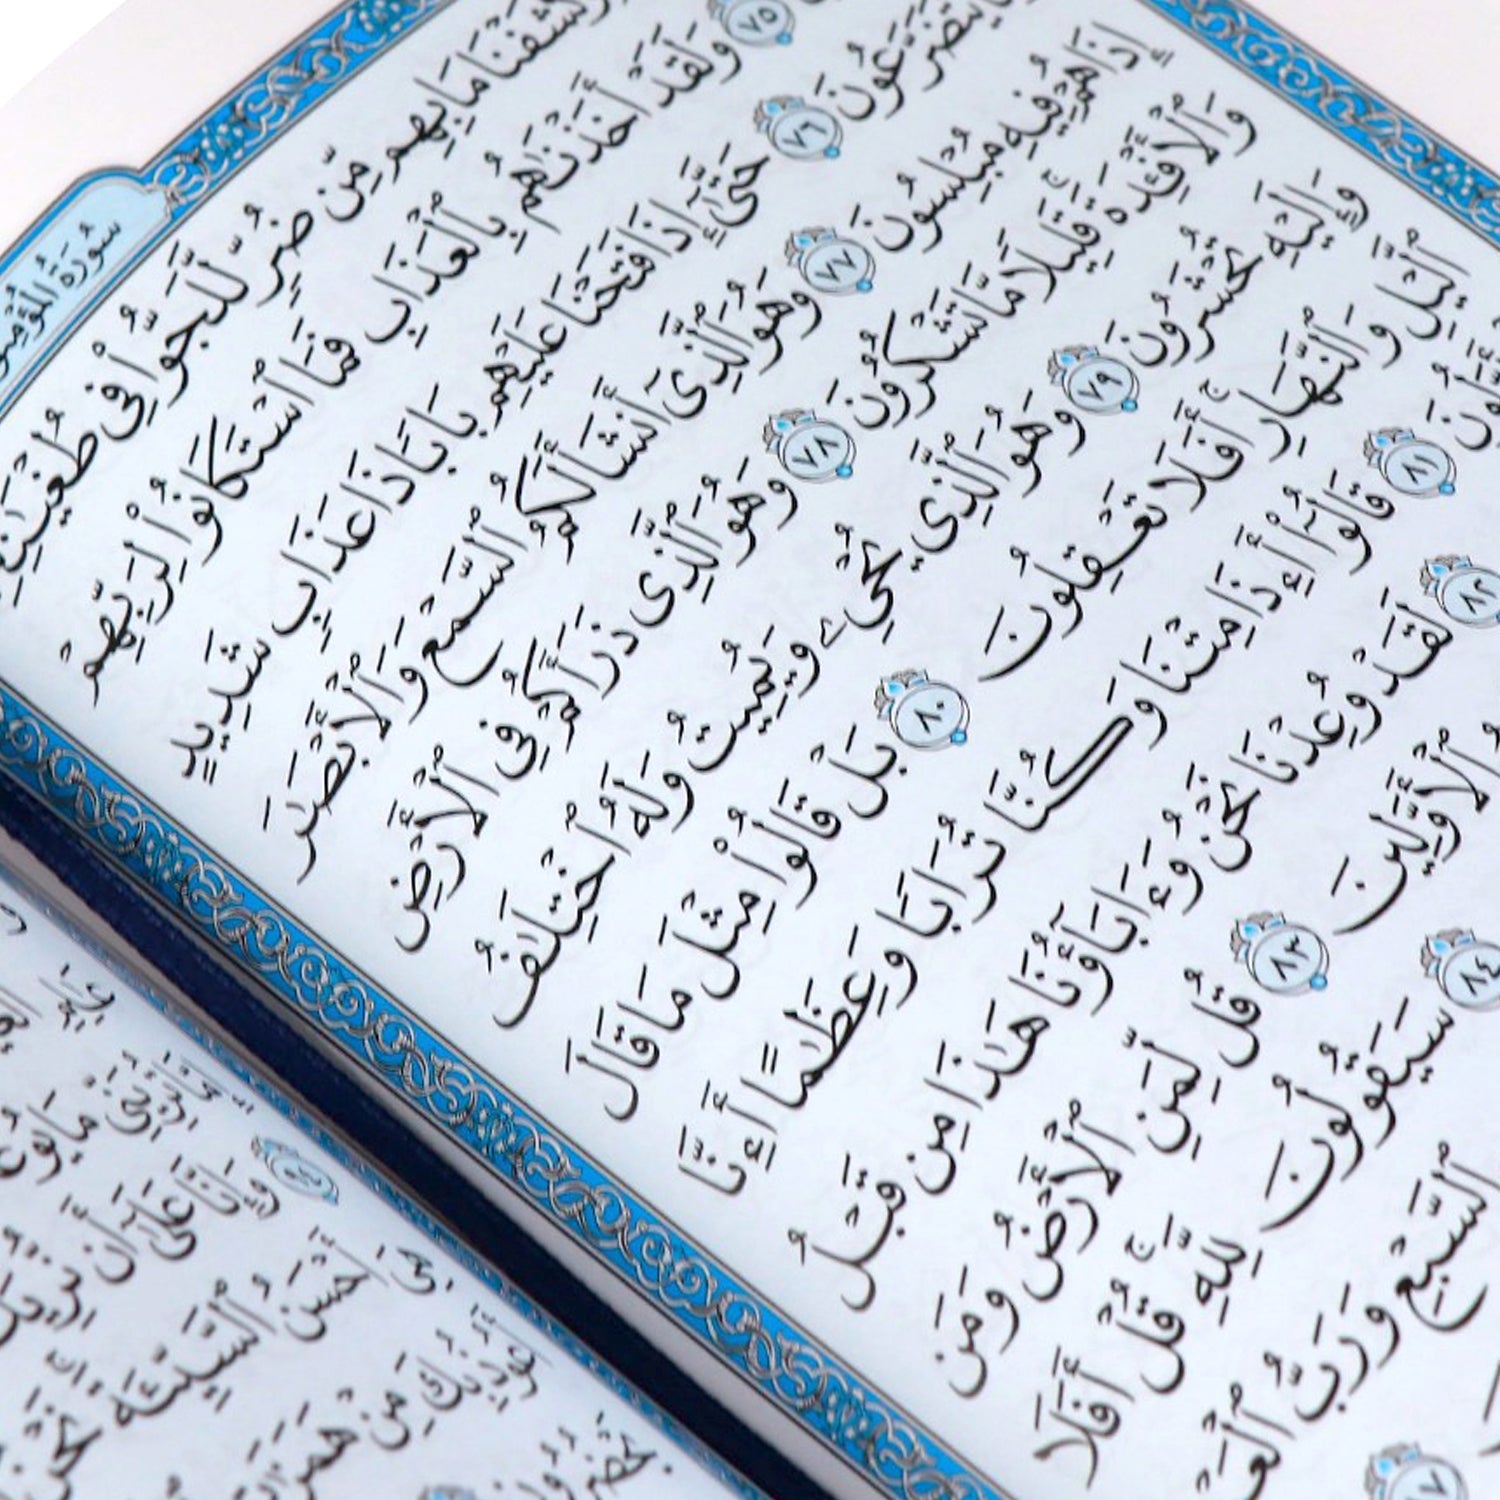 سُورَةُ المُؤْمِنُو
كَشَفْنَا مَا بِهِم مِّن ضُرٍّ لَّلَجُّوا۟ فِى طُغْيَـٰنِهِ
٧٥ وَلَقَدْ أَخَذْنَـٰهُم بِٱلْعَذَابِ فَمَا ٱسْتَكَانُوا۟ لِرَبِّهِمْ
يَتَضَرَّعُونَ ٧٦ حَتَّىٰٓ إِذَا فَتَحْنَا عَلَيْهِم بَابًا ذَا عَذَابٍ شَدِيدٍ
إِذَا هُمْ فِيهِ مُبْلِسُونَ ٧٧ وَهُوَ ٱلَّذِىٓ أَنشَأَ لَكُمُ ٱلسَّمْعَ وَٱلْأَبْصَـٰرَ
وَٱلْأَفْـِٔدَةَ قَلِيلًا مَّا تَشْكُرُونَ ٧٨ وَهُوَ ٱلَّذِى ذَرَأَكُمْ فِى ٱلْأَرْضِ
وَإِلَيْهِ تُحْشَرُونَ ٧٩ وَهُوَ ٱلَّذِى يُحْىِۦ وَيُمِيتُ وَلَهُ ٱخْتِلَـٰفُ
ٱلَّيْلِ وَٱلنَّهَارِ أَفَلَا تَعْقِلُونَ ٨٠ بَلْ قَالُوا۟ مِثْلَ مَا قَالَ
٨١ قَالُوٓا۟ أَءِذَا مِتْنَا وَكُنَّا تُرَابًا وَعِظَـٰمًا أَءِنَّا
٨٢ لَقَدْ وُعِدْنَا نَحْنُ وَءَابَآؤُنَا هَـٰذَا مِن قَبْلُ
ٱلْأَوَّلِينَ ٨٣ قُل لِّمَنِ ٱلْأَرْضُ وَمَن
٨٤ سَيَقُولُونَ لِلَّهِ قُلْ أَفَلَا
ٱلسَّبْعِ وَرَبُّ ٱلْعَ
وَإِنَّا عَلَىٰٓ أَن نُّرِيَكَ
أَحْسَنُ ٱلسَّيِّئَةَ نَحْنُ
أَعُوذُ بِكَ مِنْ هَمَزَ
يَحْضُرُونِ